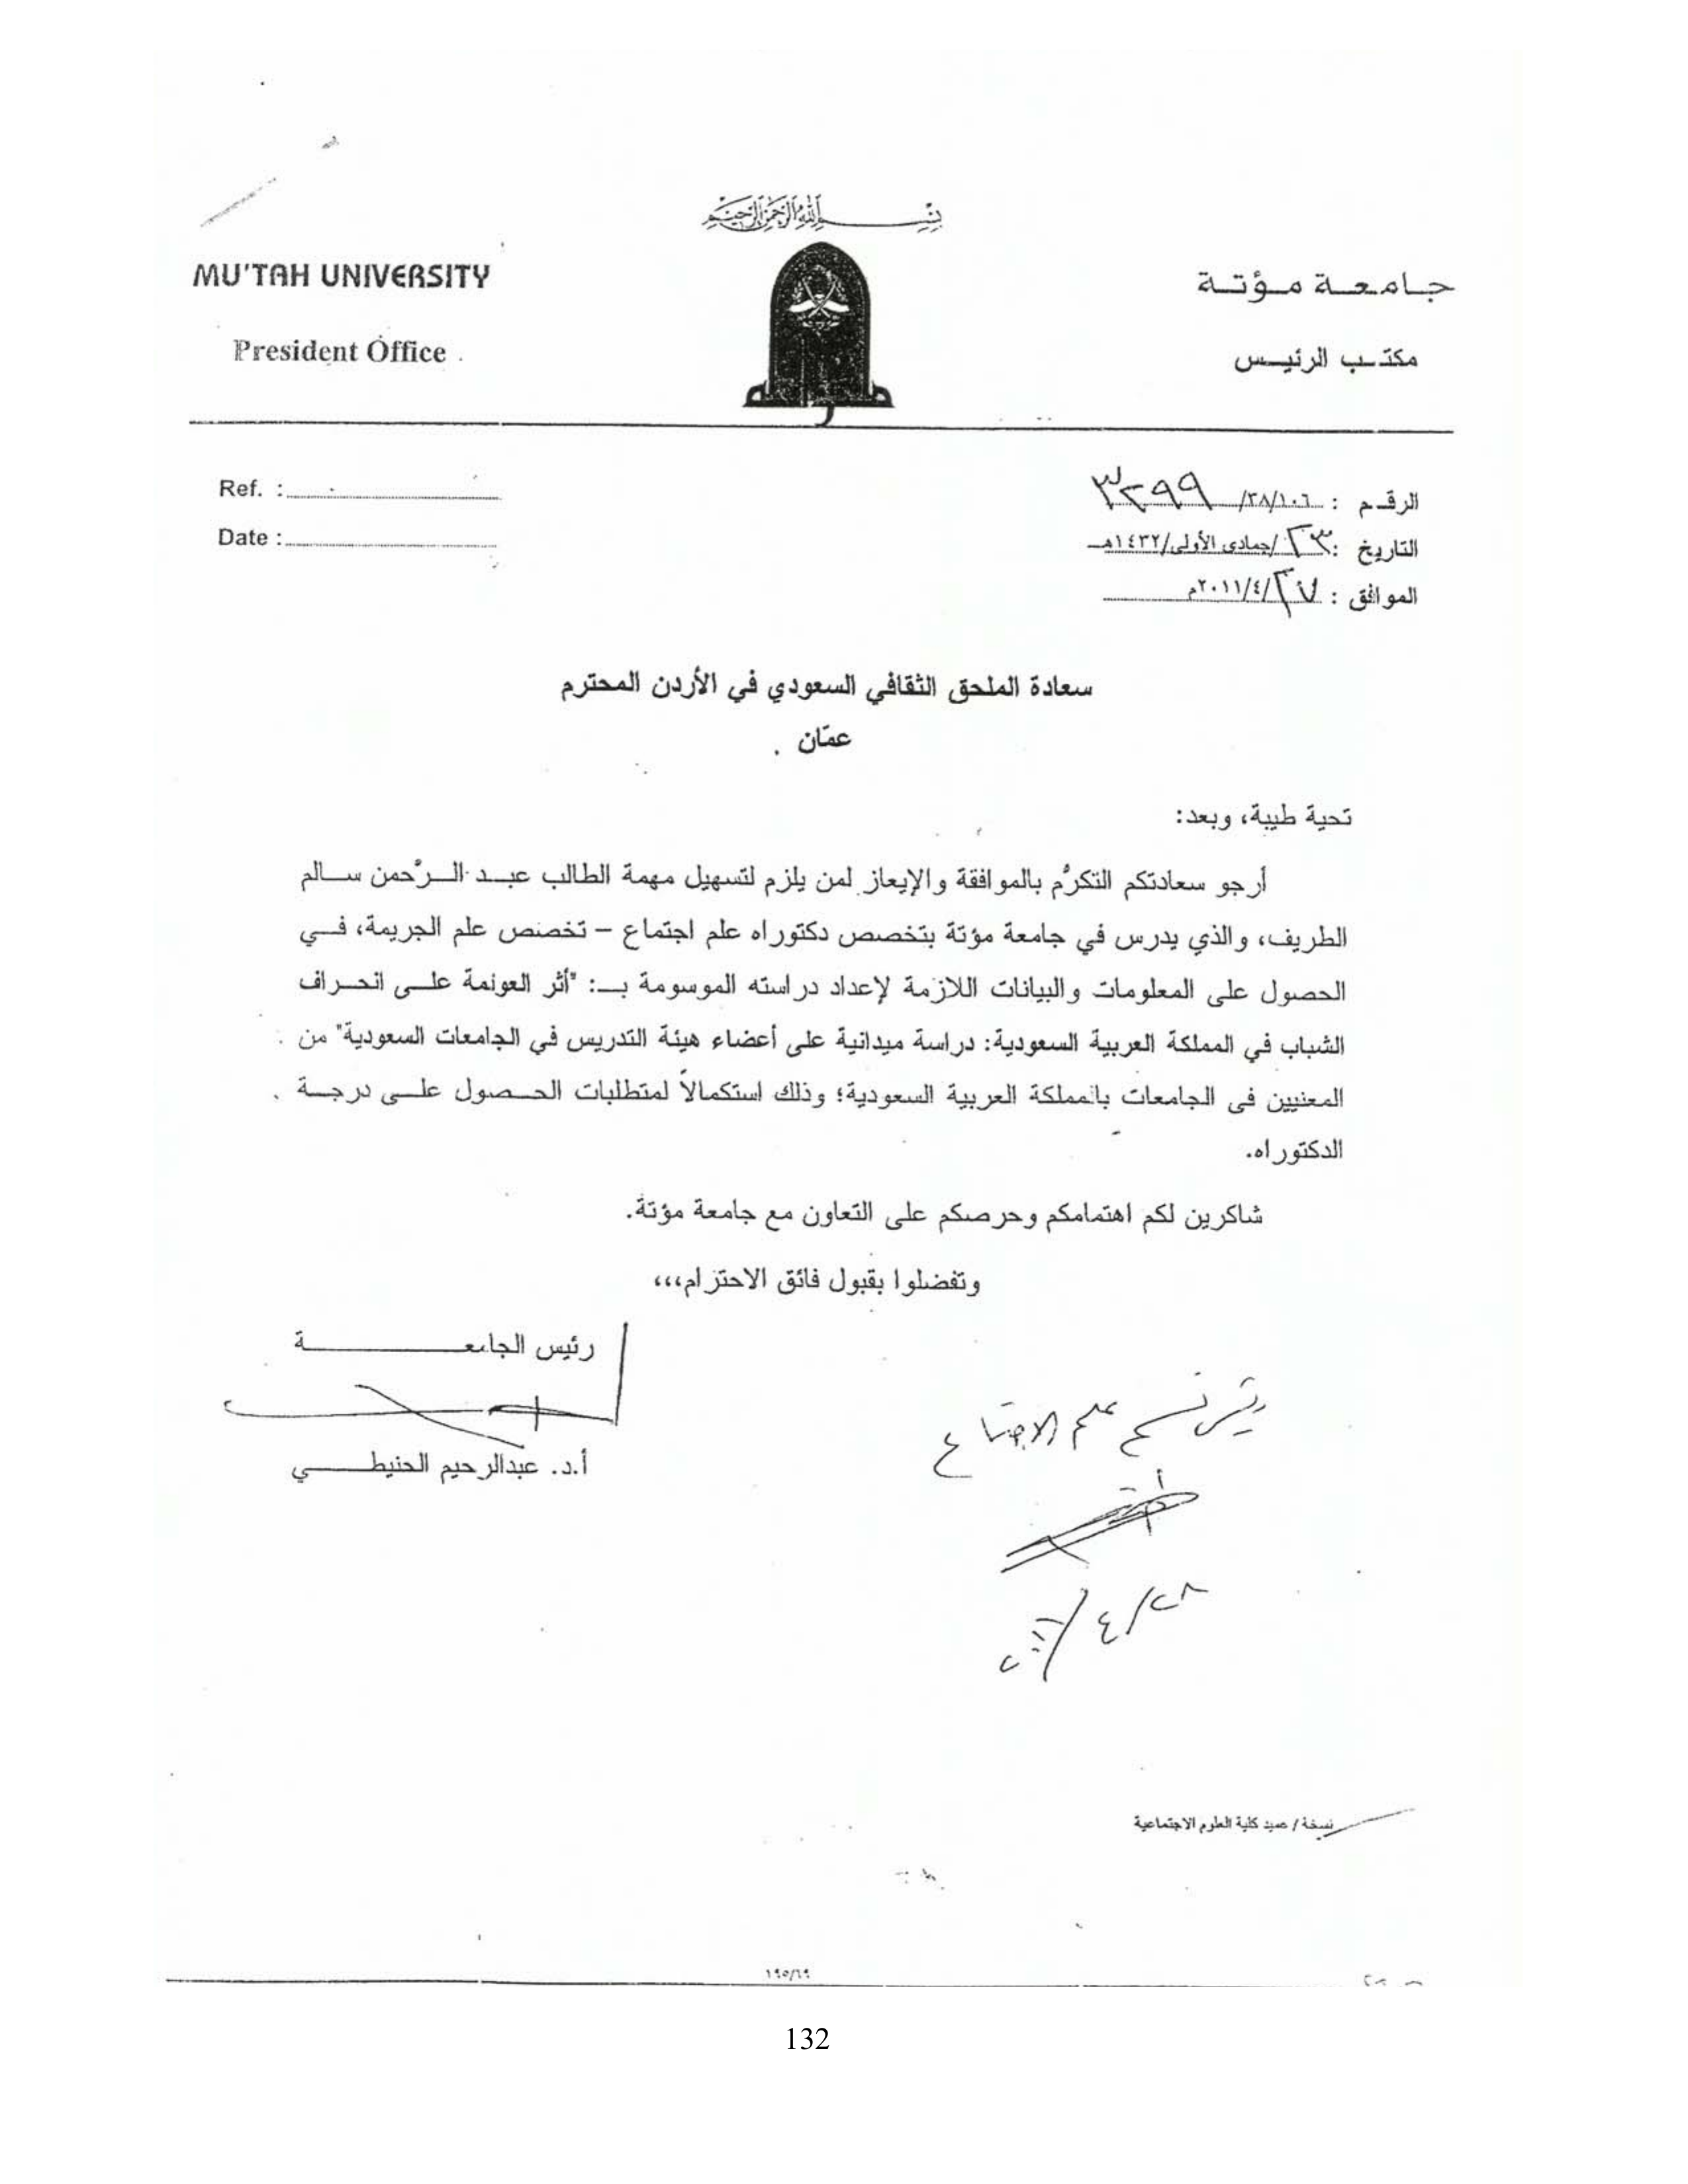 بسم الله الرحمن الرحيم
MU'TAH UNIVERSITY
جامعة مؤتة
President Office
مكتب الرئيس
Ref. :
الرقم : ٣٨/١٠٦/ ٣٢٩٩
Date :
التاريخ : ٢٣ /جمادى الأولى/١٤٣٢هـ
الموافق : ٢٧ /٢٠١١/٤م
سعادة الملحق الثقافي السعودي في الأردن المحترم
عمّان .
تحية طيبة، وبعد:
أرجو سعادتكم التكرُّم بالموافقة والإيعاز لمن يلزم لتسهيل مهمة الطالب عبد الرَّحمن سالم
الطريف، والذي يدرس في جامعة مؤتة بتخصص دكتوراه علم اجتماع – تخصص علم الجريمة، في
الحصول على المعلومات والبيانات اللازمة لإعداد دراسته الموسومة بـ: "أثر العولمة على انحراف
الشباب في المملكة العربية السعودية: دراسة ميدانية على أعضاء هيئة التدريس في الجامعات السعودية" من
المعنيين في الجامعات بالمملكة العربية السعودية؛ وذلك استكمالاً لمتطلبات الحصول على درجة
الدكتوراه.
شاكرين لكم اهتمامكم وحرصكم على التعاون مع جامعة مؤتة.
وتفضلوا بقبول فائق الاحترام،،،
رئيس الجامعة
أ.د. عبدالرحيم الحنيطي
علم الاجتماع
٢٨/٤/٢٠١١
نسخة / عميد كلية العلوم الاجتماعية
132